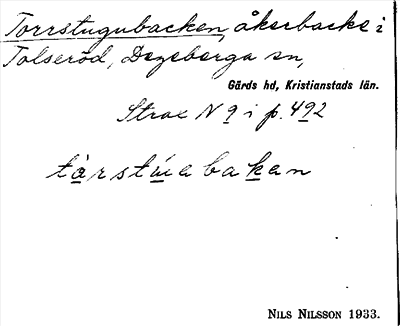 Torrstugubacken, åkerbacke i
Tolseröd, Degeberga sn,
Gärds hd, Kristianstads län.
Strax N 9 i p. 492
tàrstúabakan
NILS NILSSON 1933.